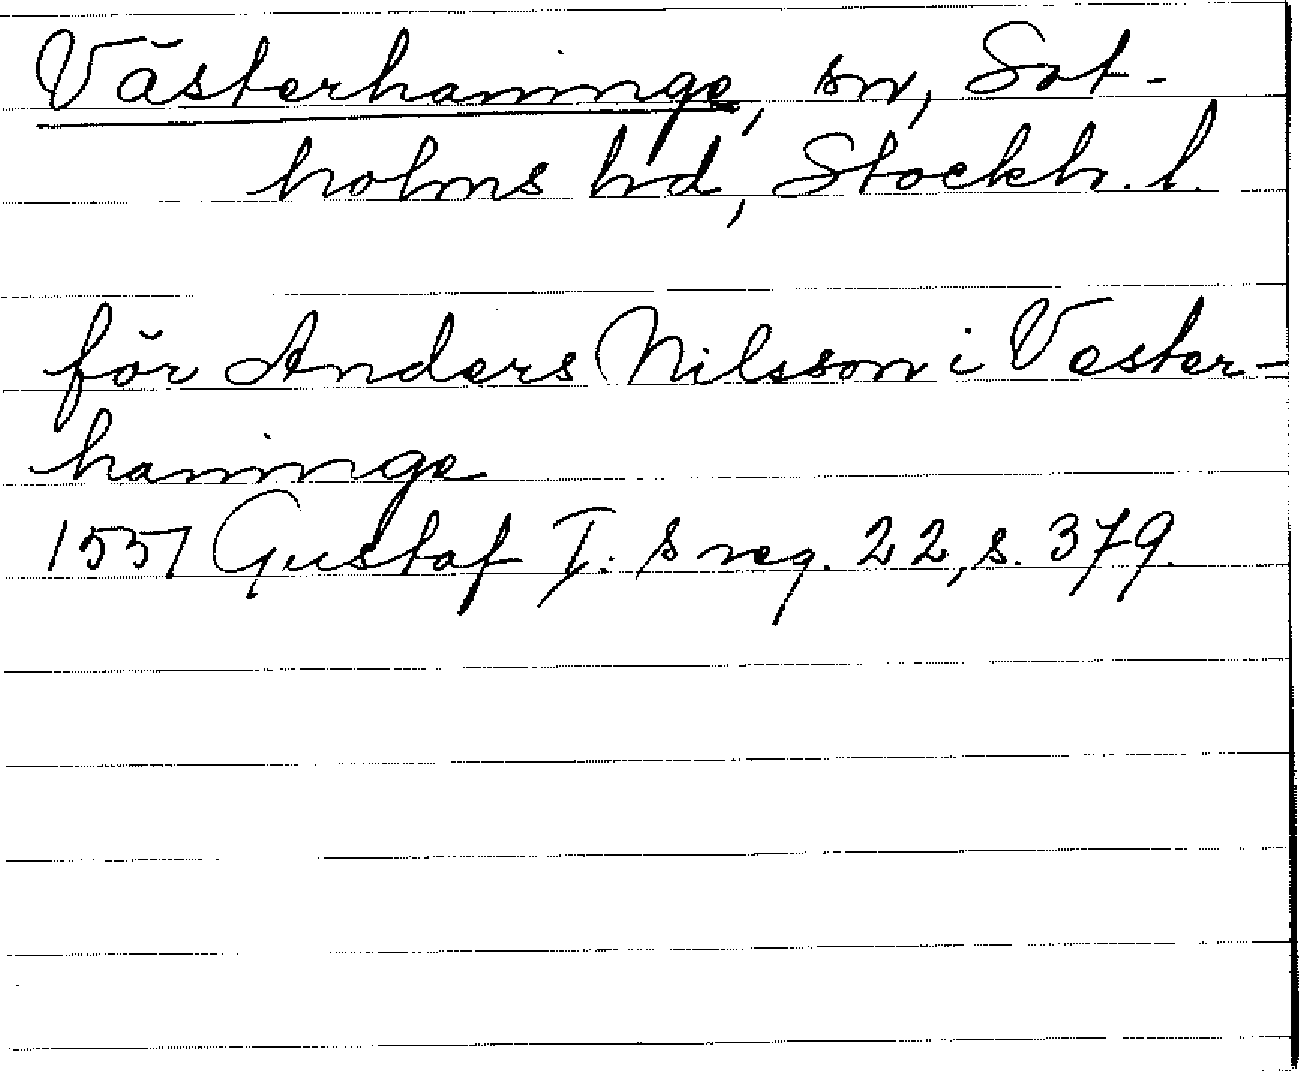 Västerhaninge, sn, Sot-
holms hd, Stockh. l.
för Anders Nilsson i Vester-
haninge
1551 Gustaf I:s reg. 22, s. 379.